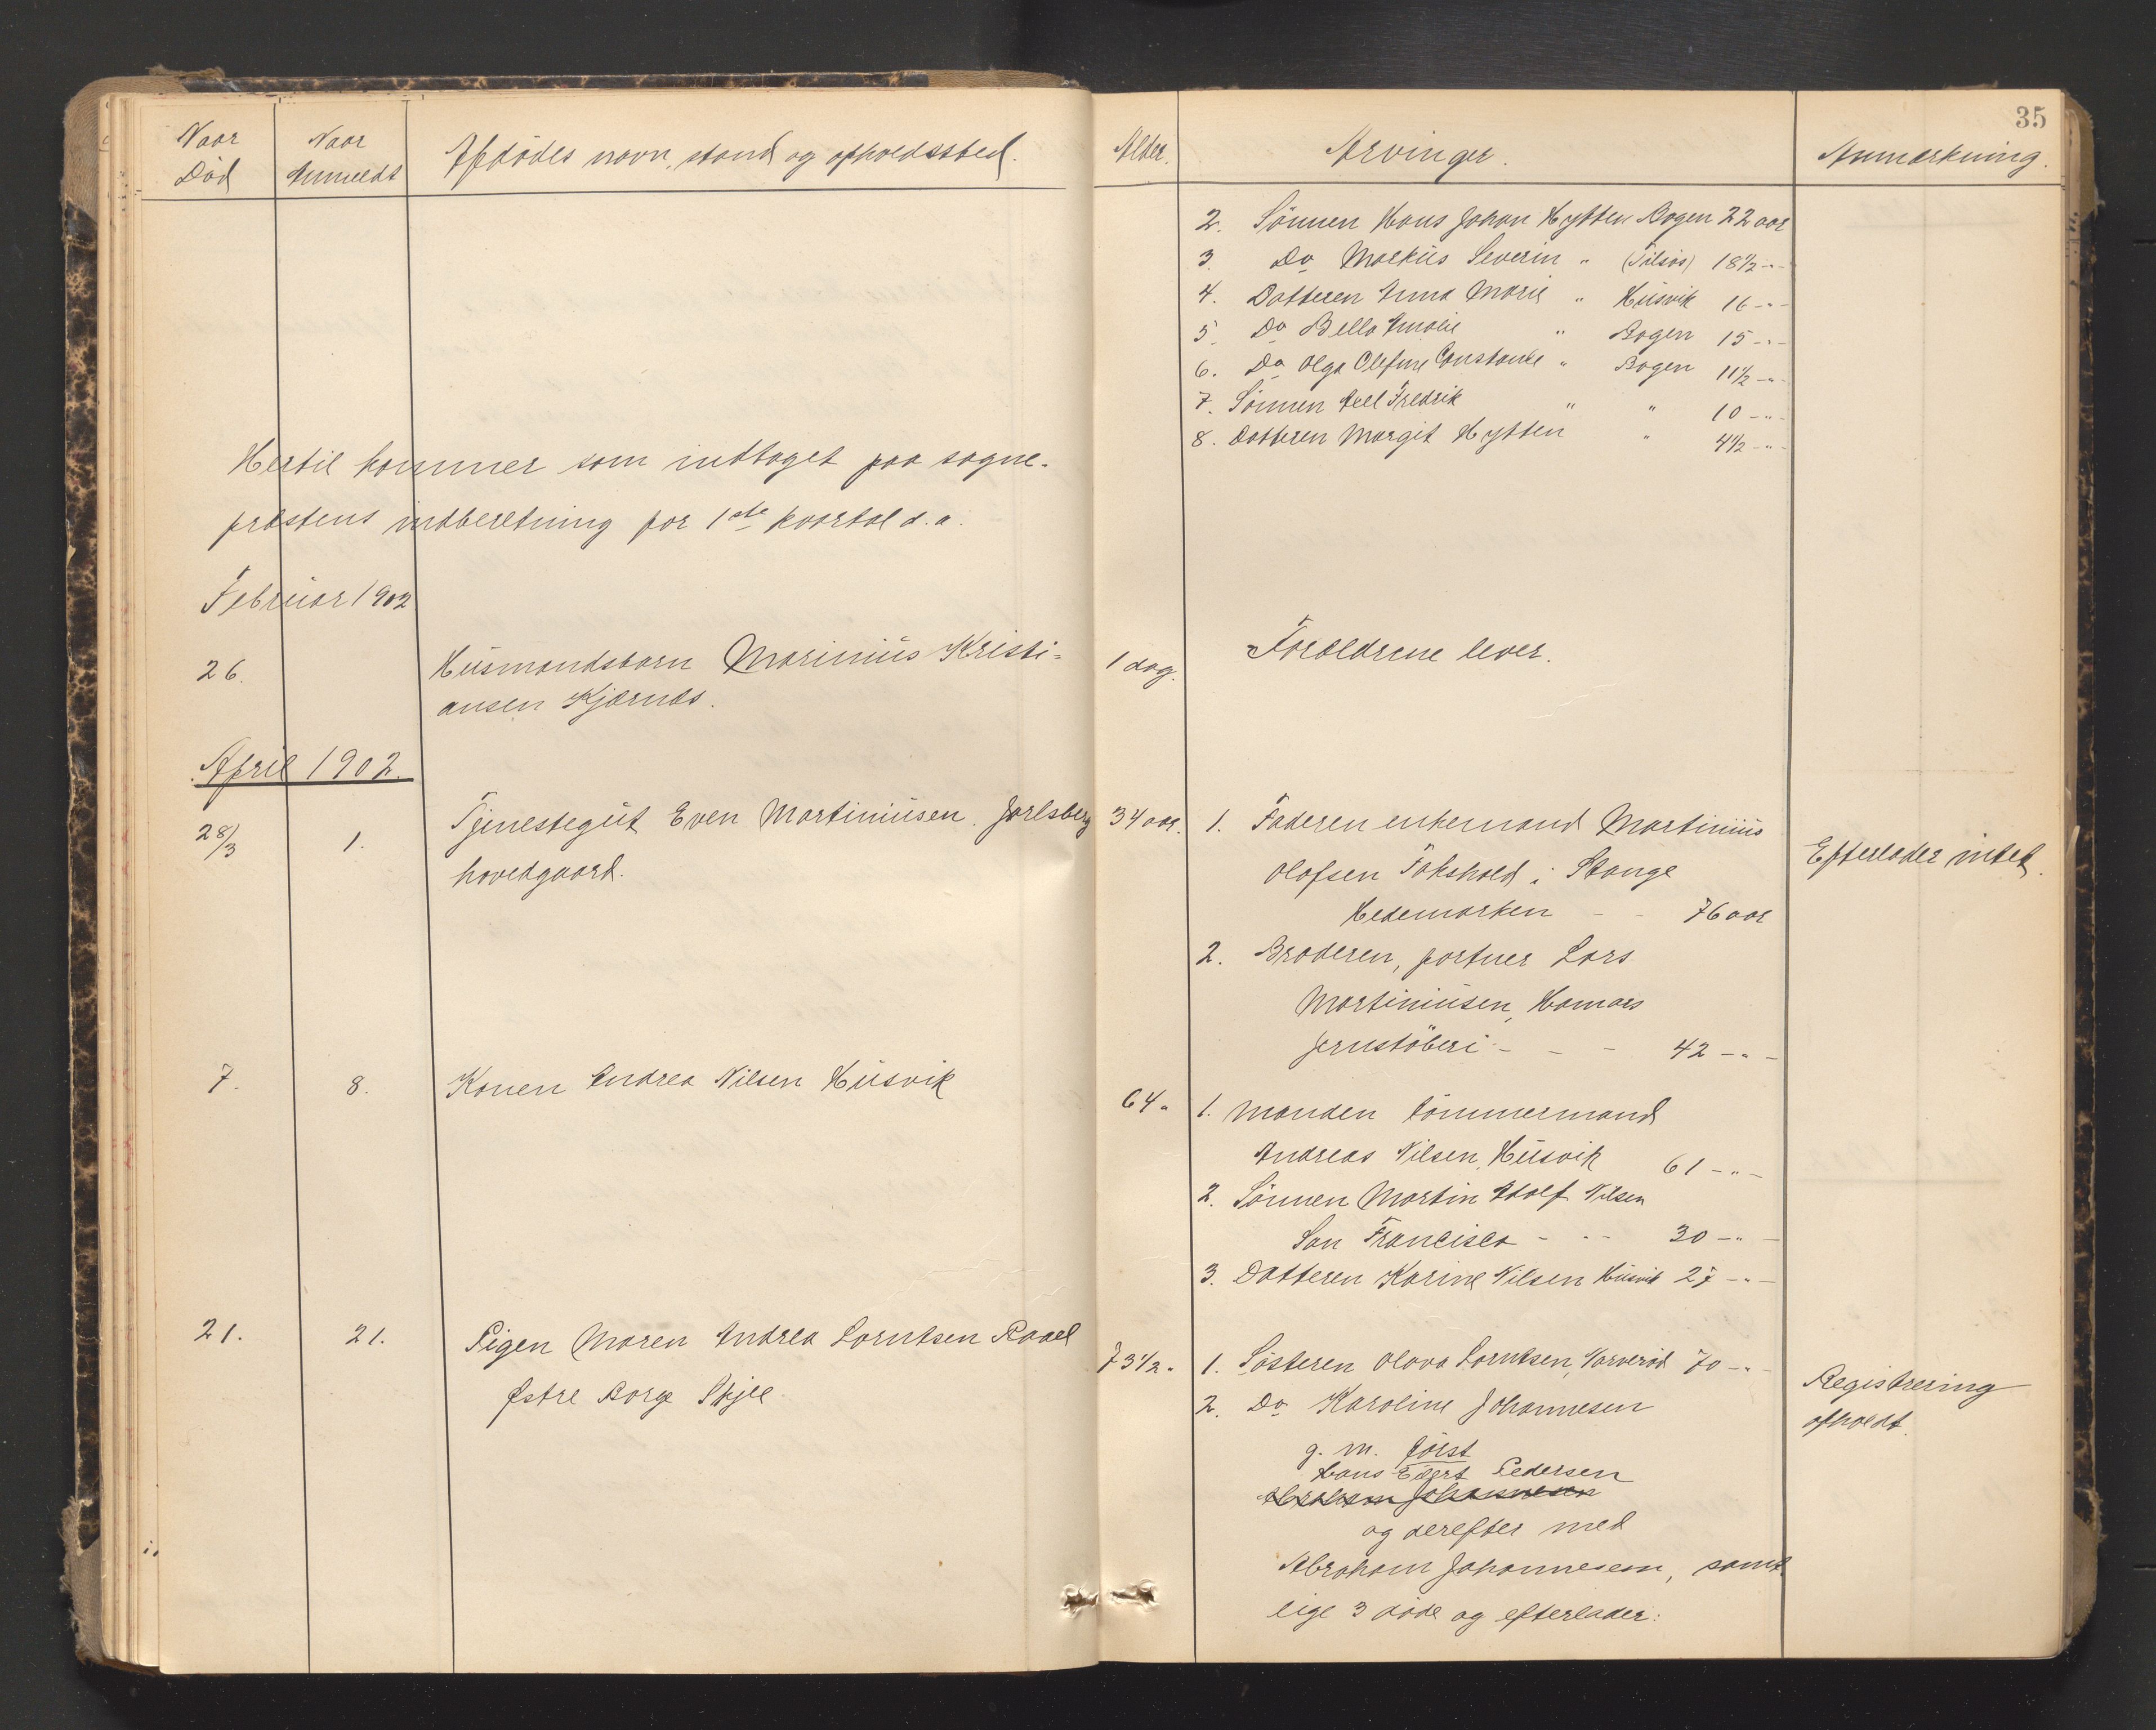 35
Naar Død
Naar Anmeldt
Afdødes navn, stand og opholdssted.
Alder.
Arvinger.
Anmærkning.
2. Sönnen Hans Johan Hytten Bogen 22 aar
3. Do Markus Severin " (Tilsös) 18½ -"-
4. Datteren Anna Marie " Husvik 16 -"-
5. Do Bella Amalie " Bogen 15 -"-
6. Do Olga Olefine Constance " Bogen 11½ -"-
7. Sönnen Axel Fredrik " " 10 -"-
8. Datteren Margit Hytten " 4½ -"-
Hertil kommer som indtaget paa sogne-
præstens indberetning for 1ste kvartal d.a.
Februar 1902
26. Husmandsbarn Marinius Kristi=
ansen Kjærnæs.
1 dag.
Forældrene lever.
April 1902.
28/3 1. Tjenestegut Even Martiniusen. Jarlsberg
hovedgaard.
34 aar.
1. Faderen enkemand Martinius
Olafsen Fokshold i Stange
Hedemarken - - 76 aar
2. Broderen, portner Lars
Martiniusen, Hamars
Jernstöberi - - - 42 -"-
Efterlader intet.
7. 8. Konen Andrea Nilsen Husvik
64 "
1. Manden tömmermand
Andreas Nilsen, Husvik 61 -"-
2. Sönnen Martin Adolf Nilsen
San Francisco - - - 30 -"-
3. Datteren Karine Nilsen Husvik 27 -"-
21. 21. Pigen Maren Andrea Lorntsen Rael
Østre Borge Skjee
73½ "
1. Søsteren Olava Lorntsen, Varveröd 70 -"-
2. Do Karoline Johannesen
g. m. först
Hans Edvert Pedersen
Abraham Johannesen
og derefter med
Abraham Johannesen, samt
lige 3 døde og efterlader:
Registrering
afholdt.